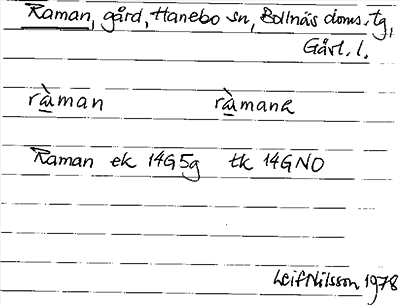 Raman, gård, Hanebo sn, Bollnäs doms. tg,
Gävl. l.
ràman ràmanɐ
Raman ek 14G5g tk 14GNO
Leif Nilsson 1978